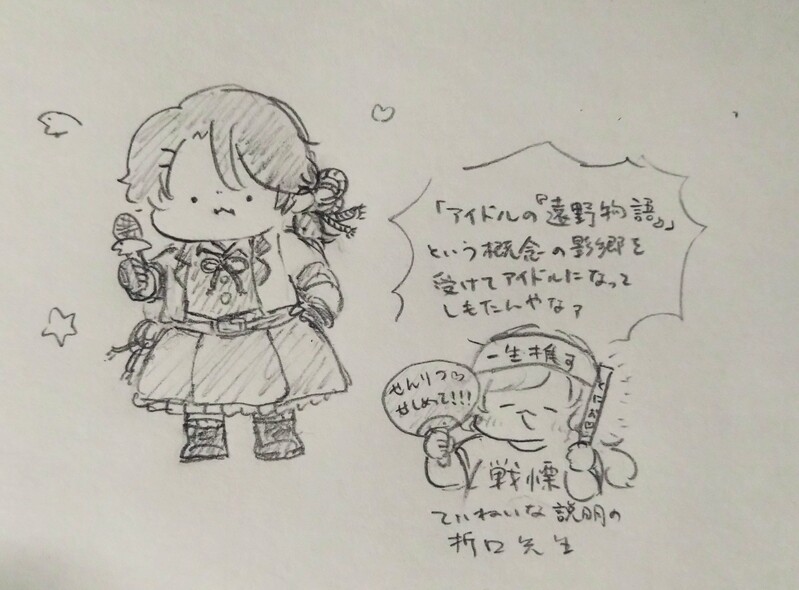 「アイドルの『遠野物語』」
という概念の影郷を
受けてアイドルになって
しもたんやなァ
一生推す
せんりつ♡
せしめて!!!
戦慄
ていねいな説明の
折口先生